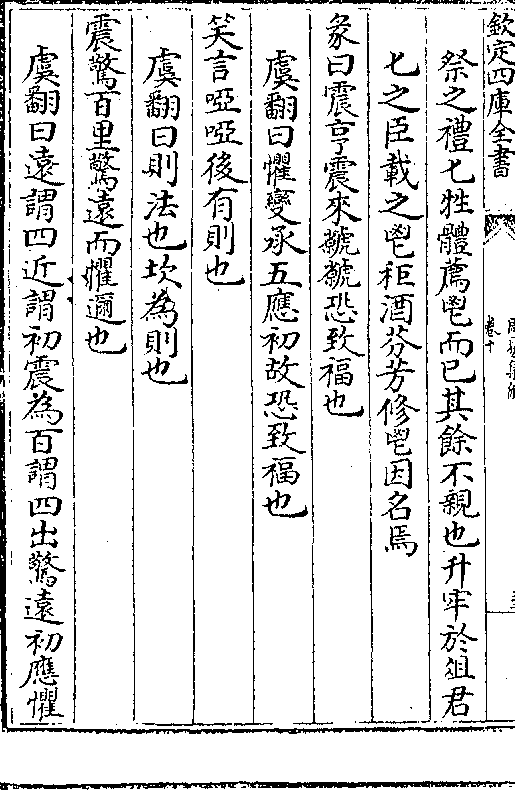 欽定四庫全書
卷十
祭之禮匕牲體薦鬯而已其餘不親也升牢於俎君
匕之臣載之鬯秬酒芬芳修鬯因名焉
彖曰震亨震來虩虩恐致福也
虞翻曰懼變承五應初故恐致福也
笑言啞啞後有則也
虞翻曰則法也坎為則也
震驚百里驚遠而懼邇也
虞翻曰遠謂四近謂初震為百謂四出驚遠初應懼